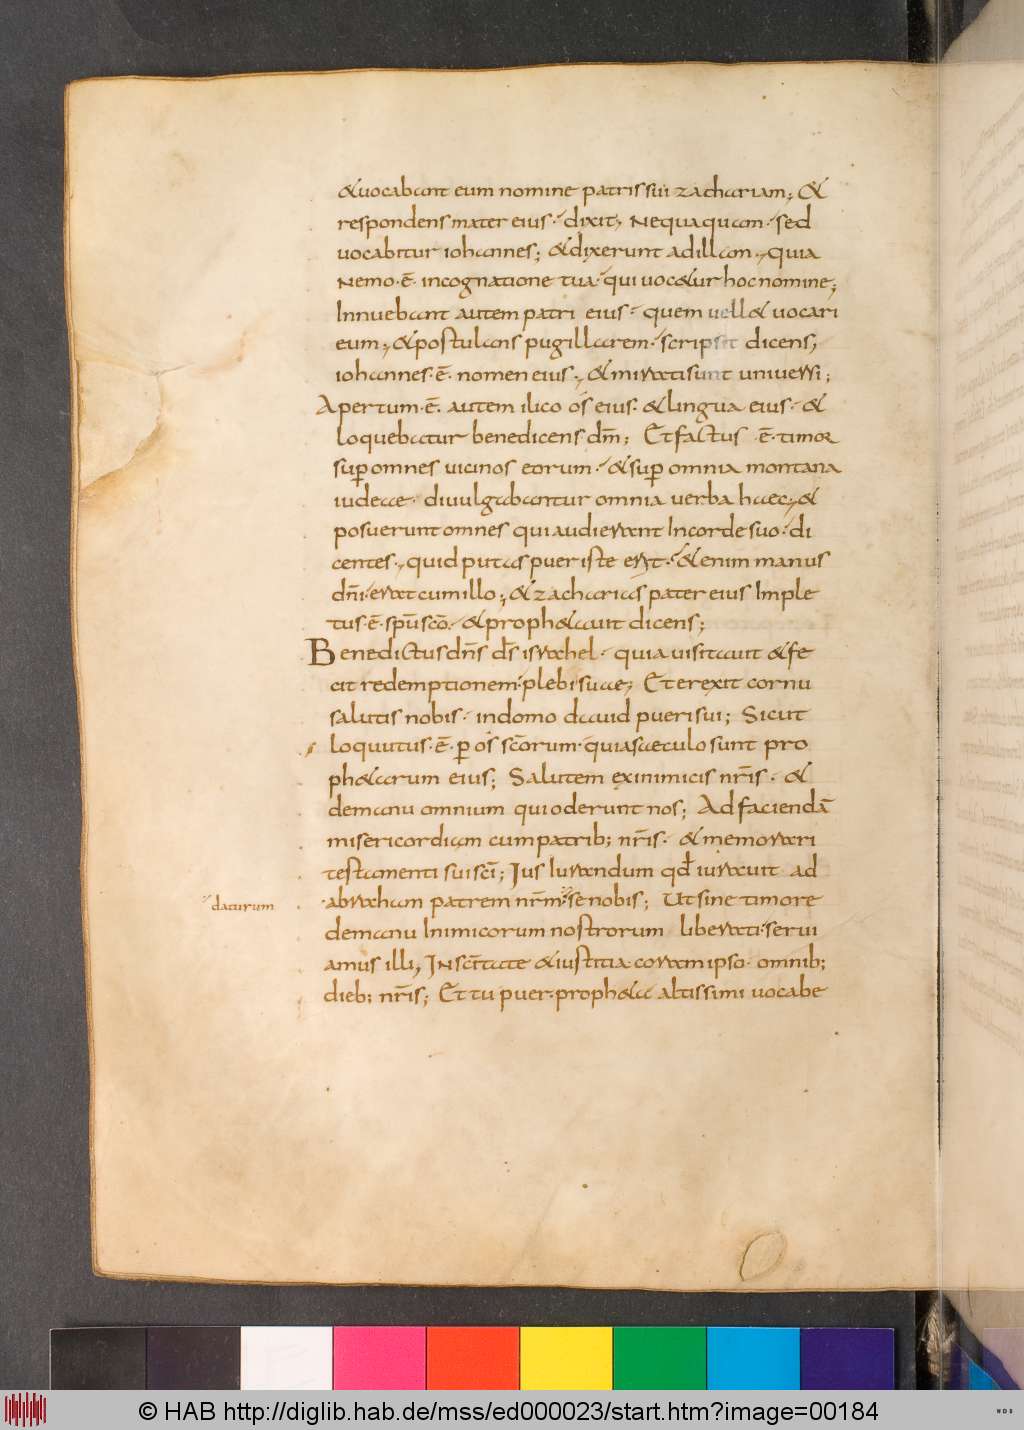 &uocabant eum nomine patris sui zachariam; &
respondens mater eius· dixit, Nequaquam· sed
uocabitur iohannes; &dixerunt adillam·, quia
Nemo·ē· incognatione tua· qui uoc&ur hoc nomine;
Innuebant autem patri eius· quem uell& uocari
eum; &postulans pugillarem· scripsit dicens,
iohannes·ē· nomen eius·, &miratisunt uniuersi;
Apertum·ē· autem ilico os eius· &lingua eius· &
loquebatur benedicens dm̄; Et factus ·ē· timor
sup̄ omnes uicinos eorum· &sup̄ omnia montana
iudeae· diuulgabantur omnia uerba haec, &
posuerunt omnes qui audierant Incorde suo· di
centes·, quid putas puer iste erit· &enim manus
dn̄i· erat cum illo; &zacharias pater eius Imple
tus·ē· sp̄u sc̄o· &proph&auit dicens;
Benedictus dn̄s d̄s israhel· quia uisitauit &fe
cit redemptionem· plebi suae; Et erexit cornu
salutis nobis· indomo dauid pueri sui; Sicut
loquutus·ē· p̄ os sc̄orum· quia saeculo sunt pro
ph&arum eius; Salutem exinimicis nr̄is· &
demanu omnium qui oderunt nos; Ad faciendā
misericordiam cum patrib; nr̄is· &memorari
testamenti sui sc̄i; Jus Iurandum qd̄ iurauit ad
abraham patrem nr̄m· se nobis; Ut sine timore
daturum
demanu Inimicorum nostrorum liberati· serui
amus illi, JN sc̄itate &iustitia coram ipso· omnib;
dieb; nr̄is; Et tu puer· proph&a altissimi uocabe
© HAB http://diglib.hab.de/mss/ed000023/start.htm?image=00184
WDB